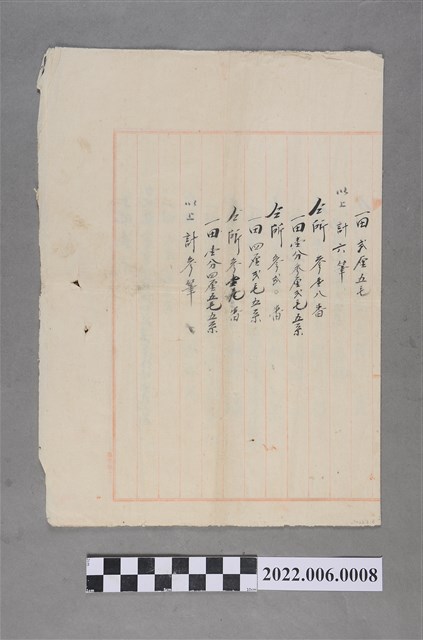 一田貳厘五毛
以上計六筆
仝所參〇八番
一田壹分參厘貳毛五糸
仝所參貳〇番
一田四厘貳毛五糸
仝所參壹九番
一田壹分四厘五毛五糸
以上計參筆
2022.006.0008